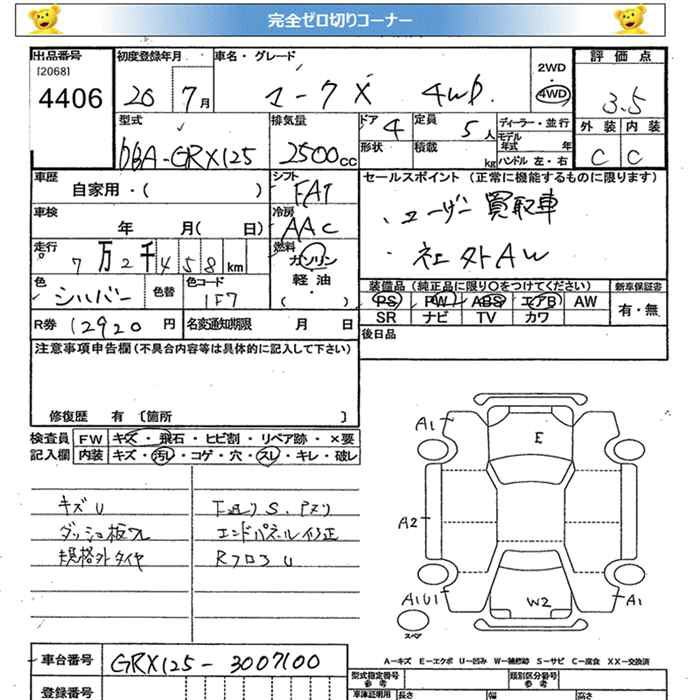 完全ゼロ切りコーナー
出品番号 初度登録年月 車名・グレード 2WD・4WD 評価点
[2068]
4406 20 7月 マークX 4WD. 3.5
型式 排気量 ドア 4 定員 5人 ディーラー・並行 外装 内装
DBA-GRX125 2500cc 形状 積載 kg モデル年式 年 ハンドル 左・右 C C
車歴 自家用・( ) シフト FAT セールスポイント (正常に機能するものに限ります)
車検 年 月( 日) 冷房 AAC ・ユーザー買取車
走行 7万2千458km 燃料 ガソリン・軽油・( ) ・社外AW
色 シルバー 色替 色コード 1F7 装備品 (純正品に限り○をつけてください) 新車保証書
PS PW ABS エアB AW 有・無
SR ナビ TV カワ
R券 12920円 名変通知期限 月 日 後日品
注意事項申告欄(不具合内容等は具体的に記入して下さい)
修復歴 有 〔箇所 〕
検査員記入欄 FW キズ・飛石・ヒビ割・リペア跡・×要
内装 キズ・汚れ・コゲ・穴・スレ・キレ・破レ
キズU
ダッシュ板ワレ
規格外タイヤ
下廻りS.アヌリ
エンドパネル修正
RフロアU
A1
E
A2
A1U1 W2 A1
スペア
A-キズ E-エクボ U-凹み W-補修跡 S-サビ C-腐食 XX-交換済
車台番号 GRX125-3007100
型式指定番号 参考 類別区分番号 参考
登録番号 車庫証明用 長さ 幅 高さ